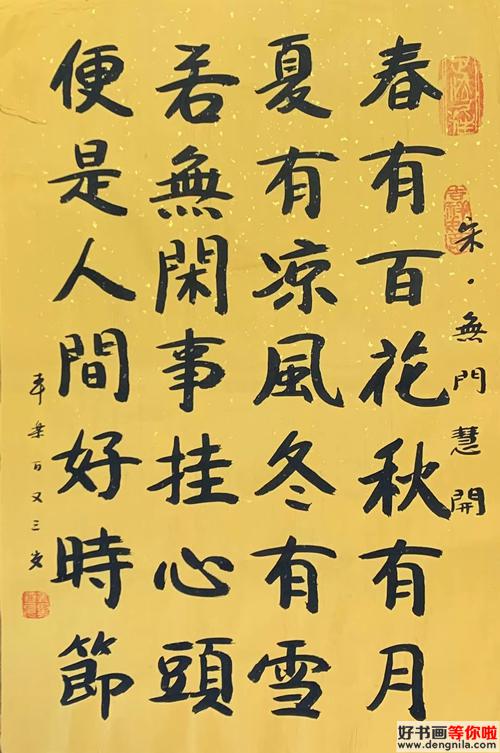 宋·無門慧開
春有百花秋有月
夏有凉風冬有雪
若無閑事挂心頭
便是人間好時節
百又三岁
好书画等你啦
www.dengnila.com